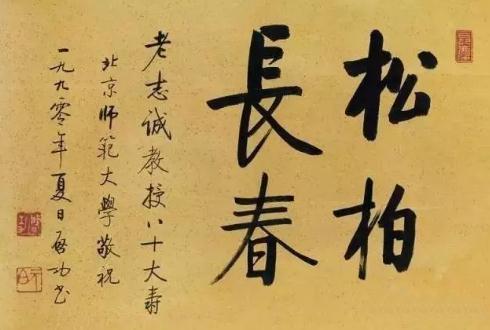 松柏
長春
老志诚教授八十大寿
北京師範大學敬祝
一九九零年夏日启功书